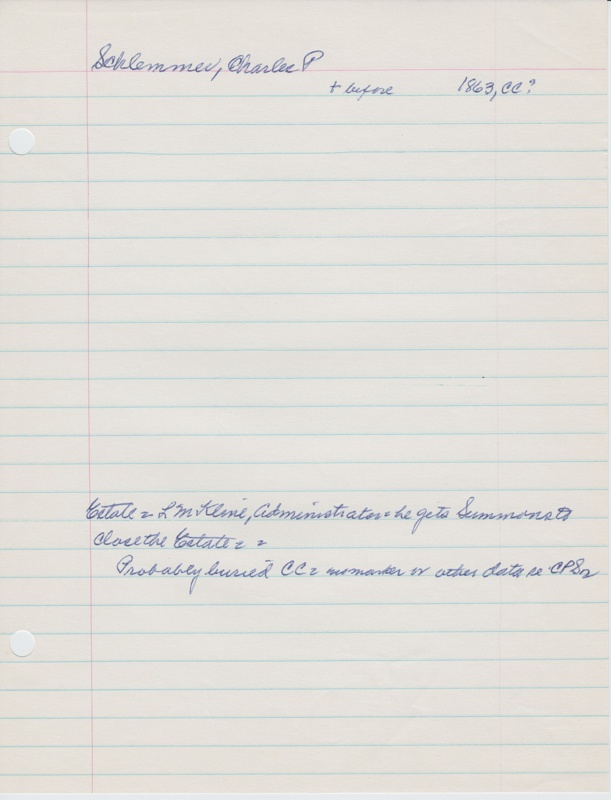 Schlemmer, Charles P
+ before 1863, CC?
Estate = L M Kline, Administrator = he gets Summons to
close the Estate = =
Probably buried CC = no marker or other data re CPS =